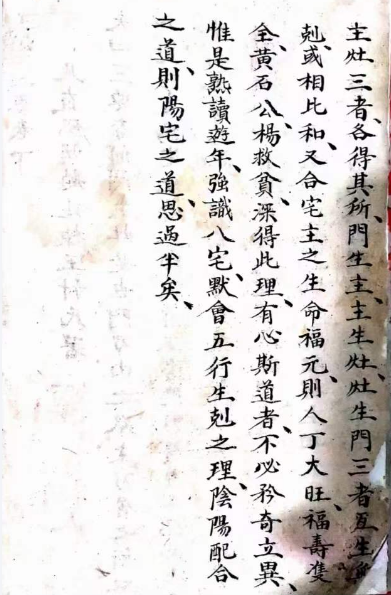 主灶三者、各得其所、門生主、主生灶、灶生門、三者互生無
尅、或相比和、又合宅主之生命福元、則人丁大旺、福壽隻
全、黄石公、楊救貧、深得此理、有心斯道者、不必矜奇立異、
惟是熟讀遊年、強識八宅、默會五行生尅之理、陰陽配合
之道、則陽宅之道、思過半矣、